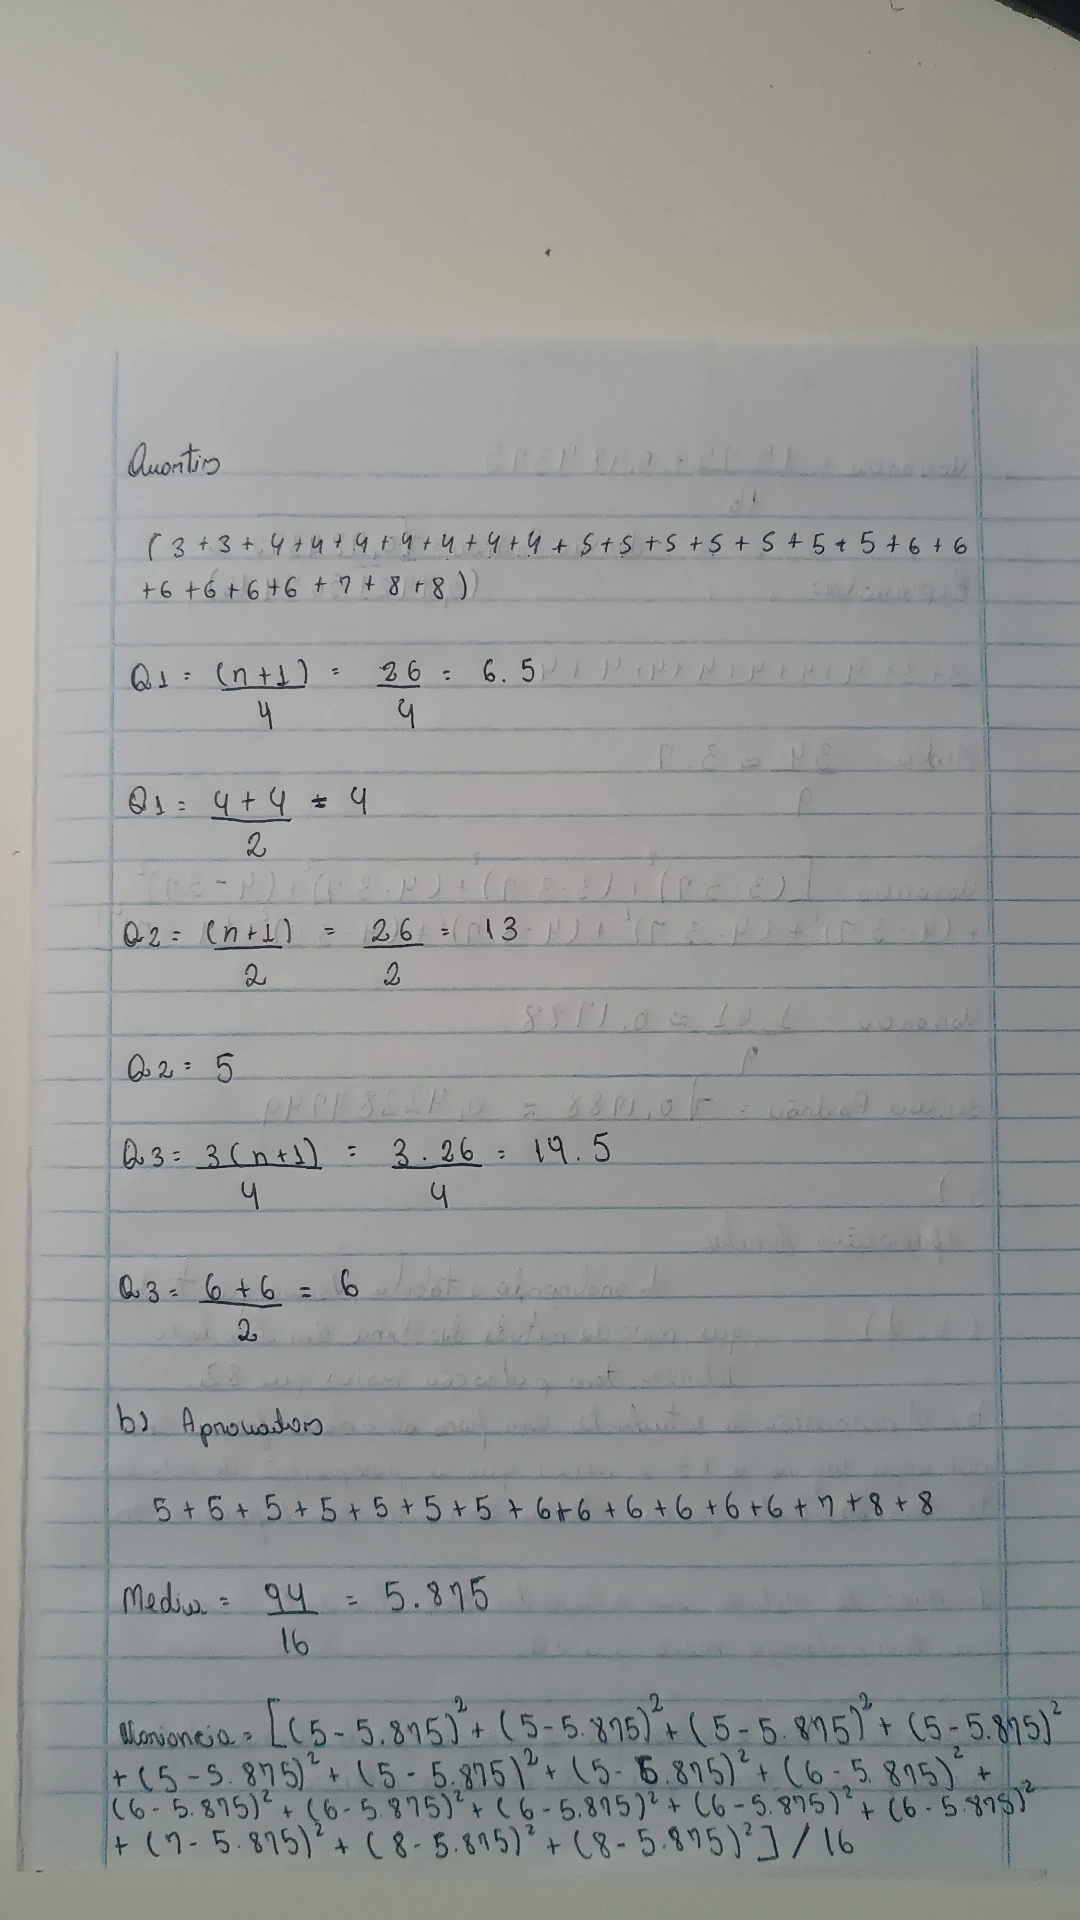 Quartis
(3+3+4+4+4+4+4+4+4+5+5+5+5+5+5+5+6+6
+6+6+6+6+7+8+8)
Q1 = (n+1)/4 = 26/4 = 6.5
Q1 = 4+4/2 = 4
Q2 = (n+1)/2 = 26/2 = 13
Q2 = 5
Q3 = 3(n+1)/4 = 3.26/4 = 19.5
Q3 = 6+6/2 = 6
b) Aprovados
5+5+5+5+5+5+5+6+6+6+6+6+6+7+8+8
Media = 94/16 = 5.875
Variancia = [(5-5.875)²+(5-5.875)²+(5-5.875)²+(5-5.875)²
+(5-5.875)²+(5-5.875)²+(5-5.875)²+(6-5.875)²+
(6-5.875)²+(6-5.875)²+(6-5.875)²+(6-5.875)²+(6-5.875)²
+(7-5.875)²+(8-5.875)²+(8-5.875)²]/16